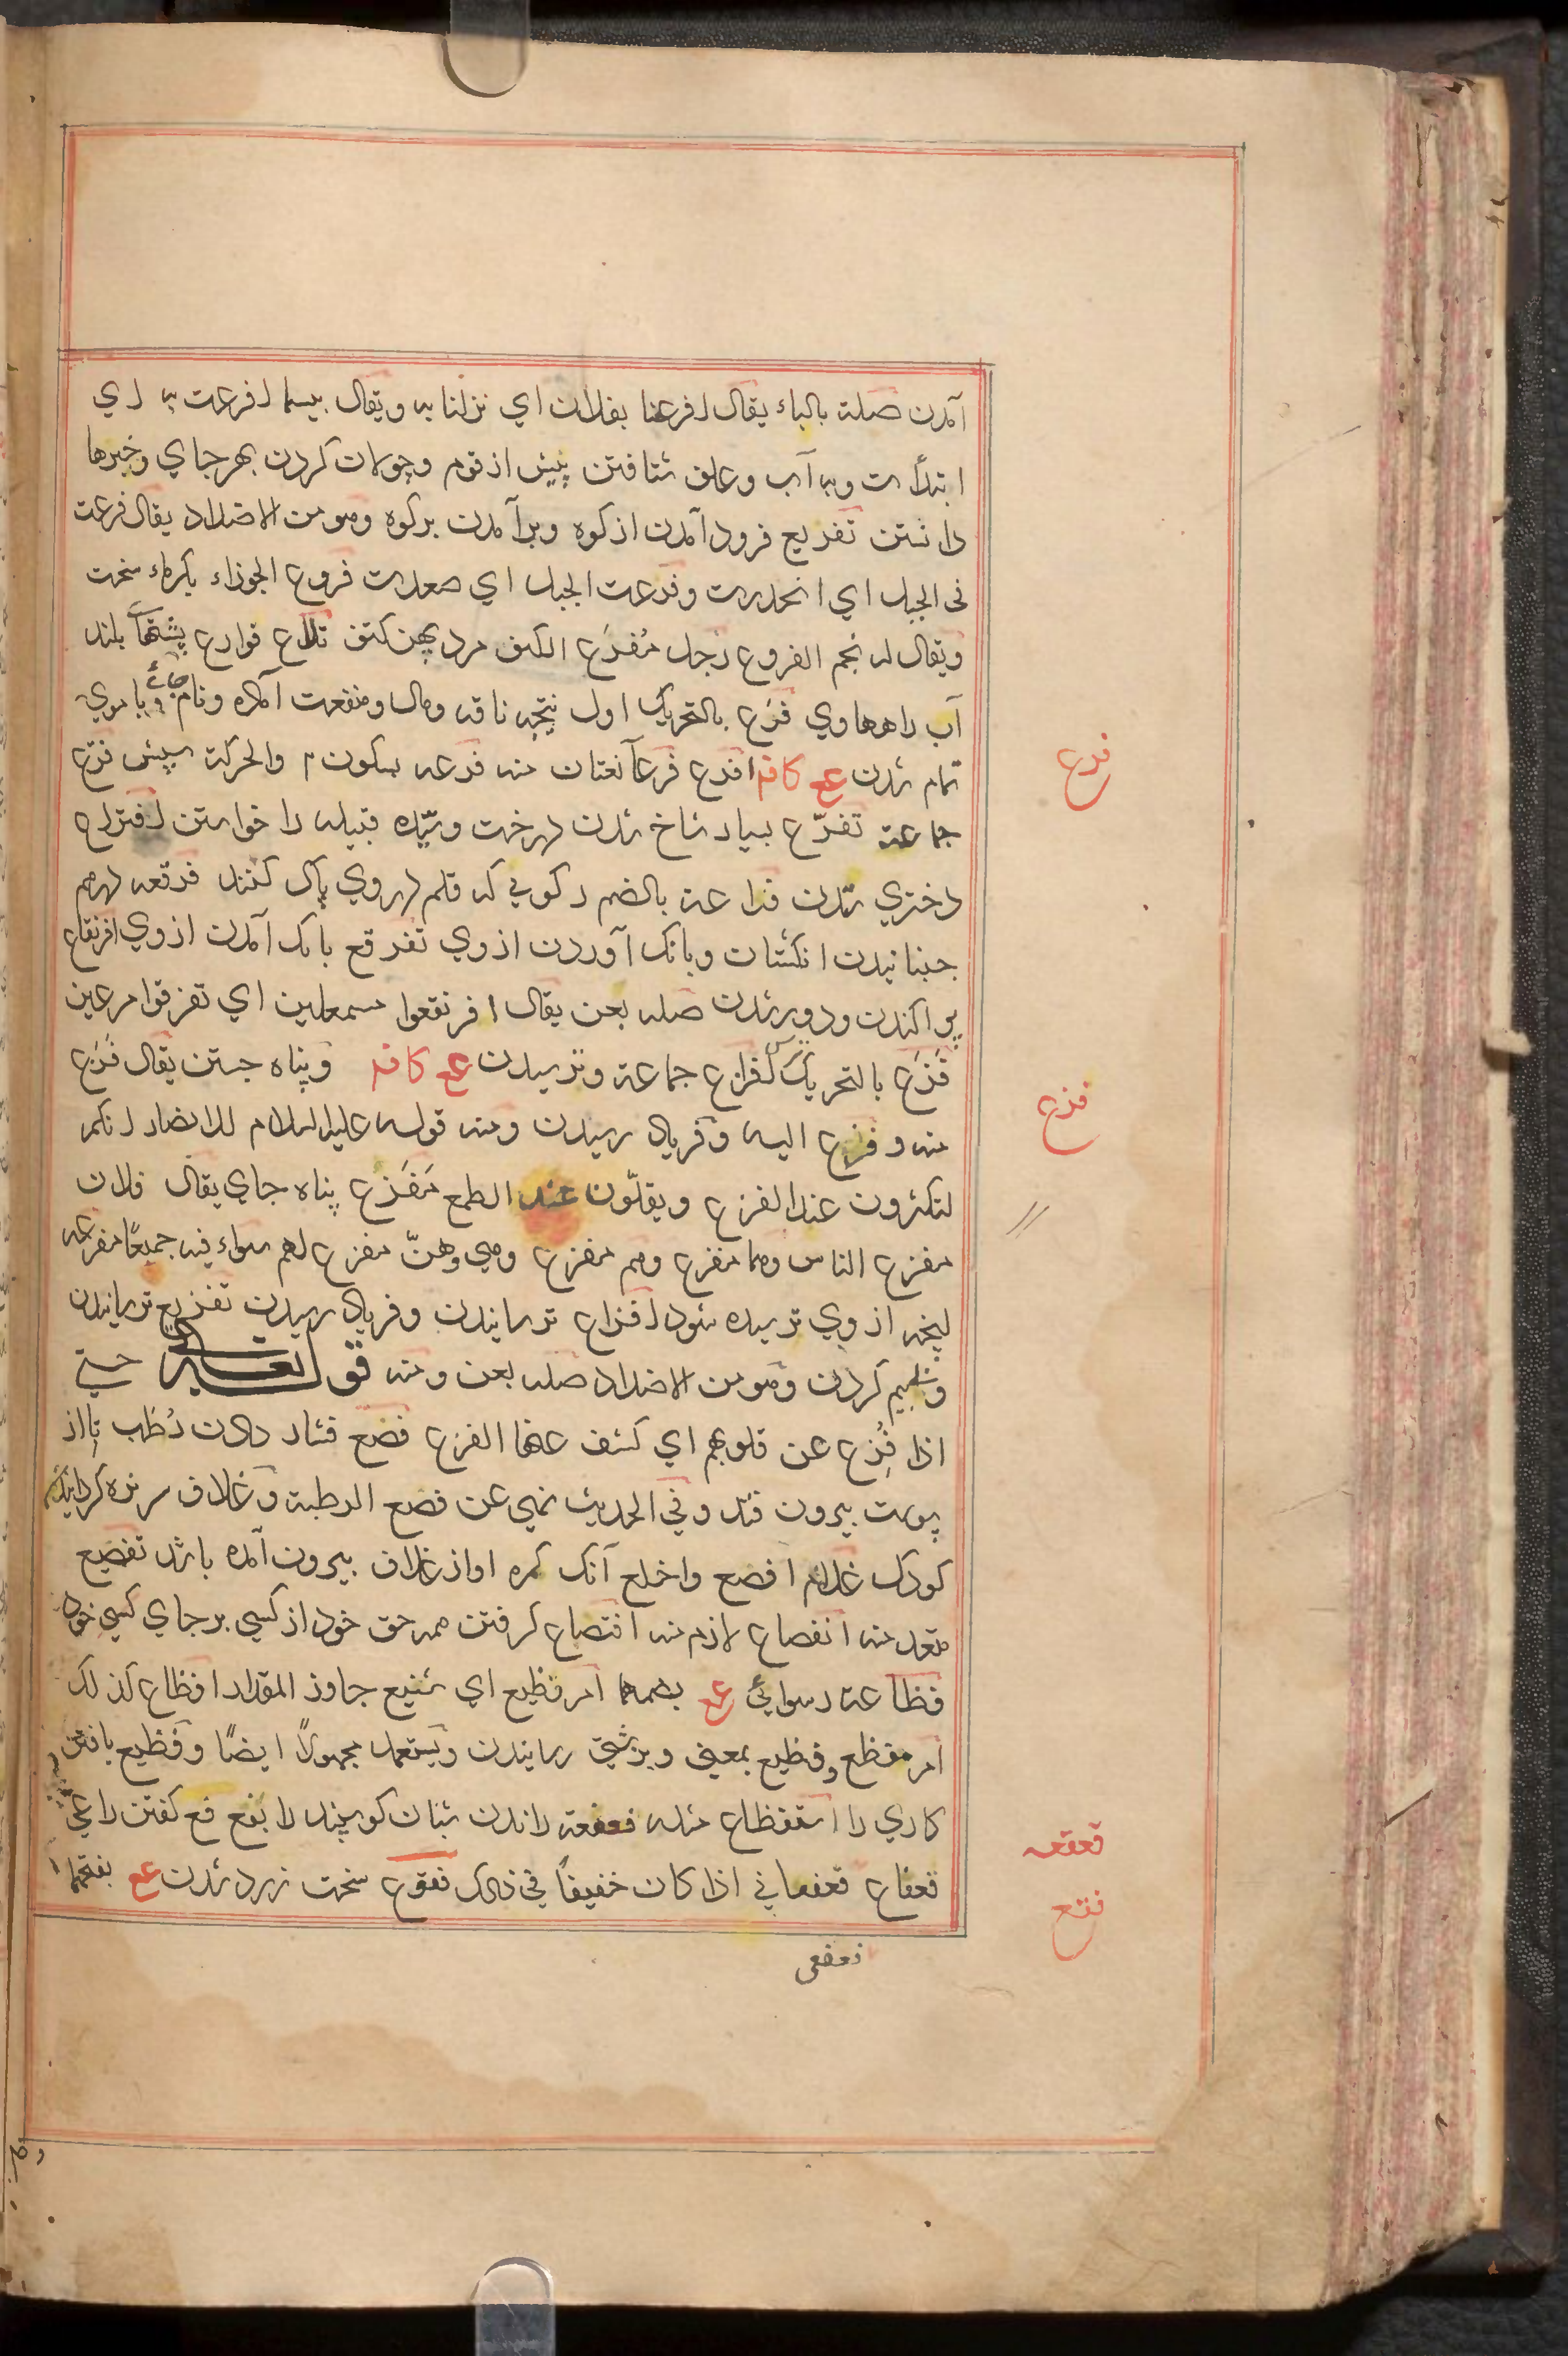 آمدن صلته بالباء يقال افرعنا بفلان اي نزلنا به ويقال بيسما افرعت به اي
ابتدأت وبه آب وعلف شتافتن پيش از قوم وجولان كردن بهر جاي وخبرها
دانستن تفريع فرود آمدن از كوه وبرآمدن بر كوه وهو من الاضداد يقال فرعت
فى الجبل اي انحدرت وفرعت الجبل اي صعدت فروع الجوزاء بگرماء سخت
ويقال له نجم الفروع رجل مُفرَع الكتف مرد پهن كتف تلاع فوارع پشتهآ بلند
آب راهها وي فَرَع بالتحريك اول نتيجه ناقه ومال ومنفعت آمده ونام جائے وبا موي
تمام شدن عع كافه افرع فرعآ نعتان منه فرعه بسكون م والحركة سپش فرع
جماعة تفرّع بسيار شاخ شدن درخت وسيّده قبيله را خواستن افتراع
دختري شدن فراعة بالضم ركوئي كه قلم در وي پاك كنند فرقعه درهم
جنبانيدن انگشتان وبانگ آوردن از وي تفرقع بانگ آمدن از وي افرنقاع
پراكندن ودور شدن صله بعن يقال افرنقعوا مسمعلين اي تفرقوا مرعين
فَزَع بالتحريك افزاع جماعة وترسيدن عع كافه وپناه جستن يقال فَزع
منه وفزع اليه وفرياد رسيدن ومنه قوله عليه السلام للانصار انكم
لتكثرون عند الفزع ويقلّون عند الطمع مَفزَع پناه جاي يقال فلان
مفزع الناس وهما مفزع وهم مفزع وهي وهنّ مفزع لهم سواء فيه جميعًا مفزعه
ليخه از وي ترسيده شود افزاع ترسانيدن وفرياد رسيدن تفزيع ترسانيدن
كردن وهو من الاضداد صله بعن ومنه قوله تعالى حتي
اذا فُزِع عن قلوبهم اي كشف عنها الفزع فصع فشار دادن رُطب تا از
پوست بيرون فتد وفي الحديث نهي عن فصع الرطبة وغلاف سر نره گردانيدن
كودك غلام افصع واخلع آنك كمره او از غلاف بيرون آمده باشد تفصيع
متعد منه انفصاع لازم منه افتصاع گرفتن همه حق خود از كسي بر جاي كسي خود
فظاعة رسوائي عع بضمها امر فظيع اي شنيع جاوز المقدار افظاع كذلك
امر مفظع وفظيع بمعنى وبزشتي رسانيدن ويستعمل مجهولاً ايضًا وفظيع يافتن
كاري را استفظاع مثله فعفعة راندن شبان گوسپند را بفع فع گفتن راعي
فعفاع فعفعاني اذا كان خفيفًا في ذلك فقوع سخت زرد شدن عع بفتحها
فرع
فزع
فعفعه
فقع
فعفعى